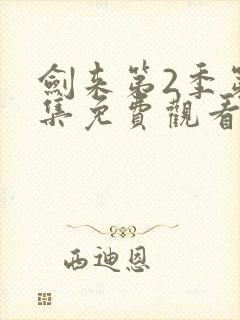 劍来第2季第
集免費觀看
西迪恩